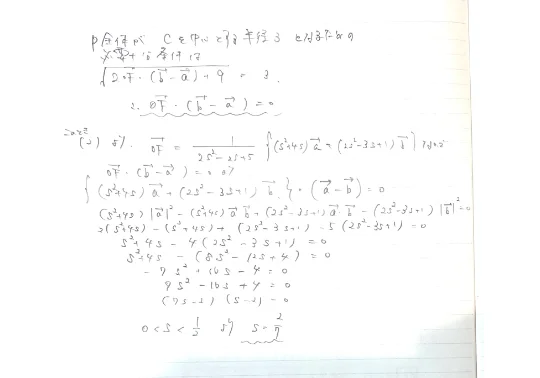 P全体が Cを中心とする半径3 となるための
必要十分条件は
√(2\vec{OF}・(\vec{b}-\vec{a})+9) = 3
∴ \vec{OF}・(\vec{b}-\vec{a}) = 0
(2) より \vec{OF} = 1/(2s²-2s+5) {(s²+4s)\vec{a} + (2s²-3s+1)\vec{b}}
\vec{OF}・(\vec{b}-\vec{a}) = 0 より
{(s²+4s)\vec{a} + (2s²-3s+1)\vec{b}}・(\vec{a}-\vec{b}) = 0
(s²+4s)|\vec{a}|² - (s²+4s)\vec{a}\vec{b} + (2s²-3s+1)\vec{a}・\vec{b} - (2s²-3s+1)|\vec{b}|² = 0
2(s²+4s) - (s²+4s) + (2s²-3s+1) - 5(2s²-3s+1) = 0
s²+4s - 4(2s²-3s+1) = 0
s²+4s - (8s²-12s+4) = 0
-7s²+16s-4 = 0
7s²-16s+4 = 0
(7s-2)(s-2) = 0
0<s<1/2 より s=2/7